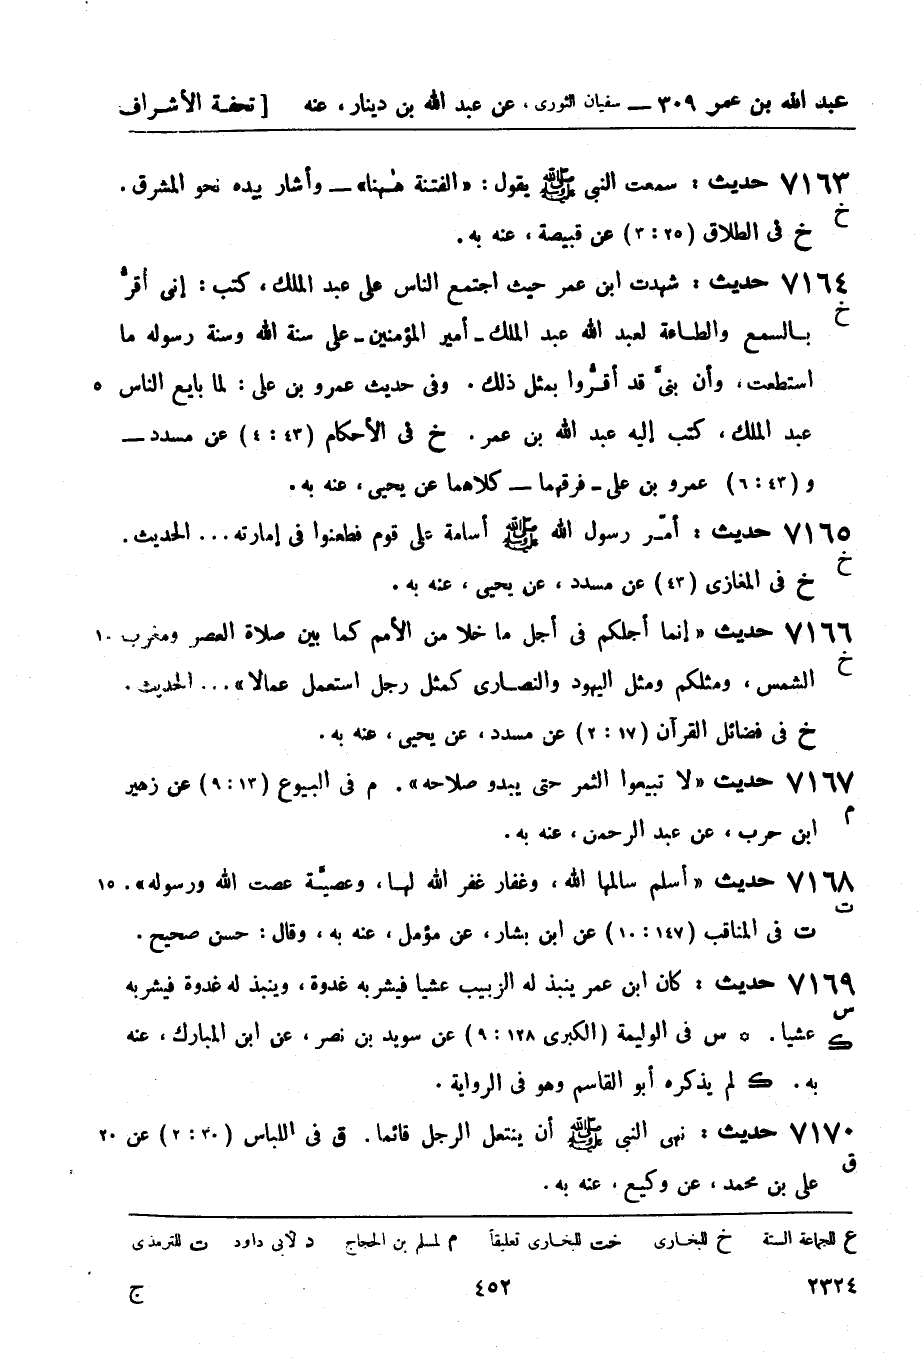 عبد الله بن عمر ٣٠٩ ــ سفيان الثورى ، عن عبد الله بن دينار ، عنه [ تحفة الأشراف
٧١٦٣ حديث : سمعت النبى ﷺ يقول : «الفتنة هٰهنا» ــ وأشار بيده نحو المشرق .
خ
خ فى الطلاق (٢٥ : ٣) عن قبيصة ، عنه به .
٧١٦٤ حديث : شهدت ابن عمر حيث اجتمع الناس على عبد الملك ، كتب : إنى أقرُّ
خ
بالسمع والطاعة لعبد الله عبد الملك ـ أمير المؤمنين ـ على سنة الله وسنة رسوله ما
استطعت ، وأن بنىَّ قد أقرُّوا بمثل ذلك . وفى حديث عمرو بن على : لما بايع الناس ٥
عبد الملك ، كتب إليه عبد الله بن عمر . خ فى الأحكام (٤٣ : ٤) عن مسدد ــ
و (٤٣ : ٦) عمرو بن على ـ فرقهما ــ كلاهما عن يحيى ، عنه به .
٧١٦٥ حديث : أمّر رسول الله ﷺ أسامة على قوم فطعنوا فى إمارته ... الحديث .
خ
خ فى المغازى (٤٣) عن مسدد ، عن يحيى ، عنه به .
٧١٦٦ حديث « إنما أجلكم فى أجل ما خلا من الأمم كما بين صلاة العصر ومغرب ١٠
خ
الشمس ، ومثلكم ومثل اليهود والنصارى كمثل رجل استعمل عمالا» ... الحديث .
خ فى فضائل القرآن (١٧ : ٢) عن مسدد ، عن يحيى ، عنه به .
٧١٦٧ حديث «لا تبيعوا الثمر حتى يبدو صلاحه» . م فى البيوع (١٣ : ٩) عن زهير
م
ابن حرب ، عن عبد الرحمن ، عنه به .
٧١٦٨ حديث « أسلم سالمها الله ، وغفار غفر الله لها ، وعصيَّة عصت الله ورسوله» . ١٥
ت
ت فى المناقب (١٤٧ : ١٠) عن ابن بشار ، عن مؤمل ، عنه به ، وقال : حسن صحيح .
٧١٦٩ حديث : كان ابن عمر ينبذ له الزبيب عشيا فيشربه غدوة ، وينبذ له غدوة فيشربه
س
ك عشيا . * س فى الوليمة (الكبرى ١٢٨ : ٩) عن سويد بن نصر ، عن ابن المبارك ، عنه
به . ك لم يذكره أبو القاسم وهو فى الرواية .
٧١٧٠ حديث : نهى النبى ﷺ أن ينتعل الرجل قائما . ق فى اللباس (٣٠ : ٢) عن ٢٠
ق
على بن محمد ، عن وكيع ، عنه به .
ع للجماعة الستة خ للبخارى خت للبخارى تعليقاً م لمسلم بن الحجاج د لأبى داود ت للترمذى
٢٣٢٤ ٤٥٢ ج